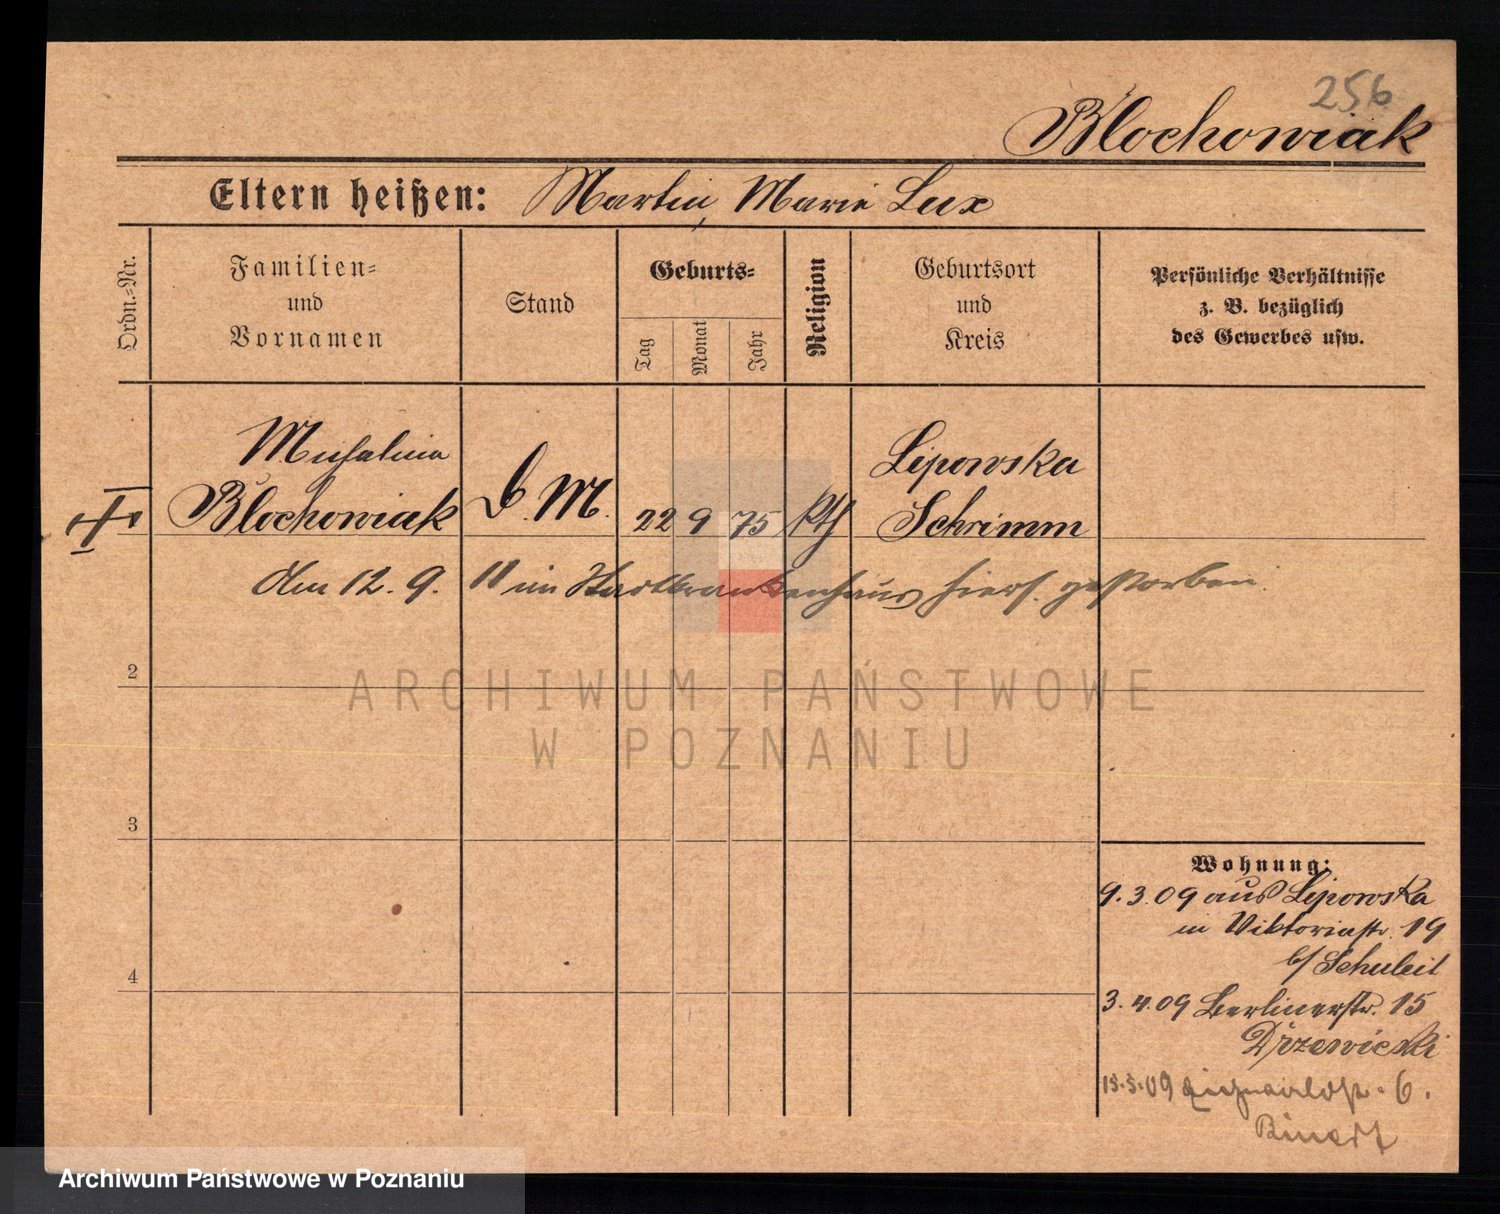 256
Blochowiak
Eltern heißen: Martin, Marie Lux
Ordn.-Nr.
Familien-
und
Vornamen
Stand
Geburts-
Tag
Monat
Jahr
Religion
Geburtsort
und
Kreis
Persönliche Verhältnisse
z. B. bezüglich
des Gewerbes usw.
Michalina
Blochowiak
D. M. 22 9 75 kth
Lipowska
Schrimm
Am 12. 9. 11 im Stadtkrankenhaus hiers. gestorben.
2
3
4
Wohnung:
9.3.09 aus Lipowska
in Viktoriastr. 19
b/ Schuleit
3.4.09 Berlinerstr. 15
Drzewiecki
15.5.09 6.
ARCHIWUM PAŃSTWOWE
W POZNANIU
Archiwum Państwowe w Poznaniu